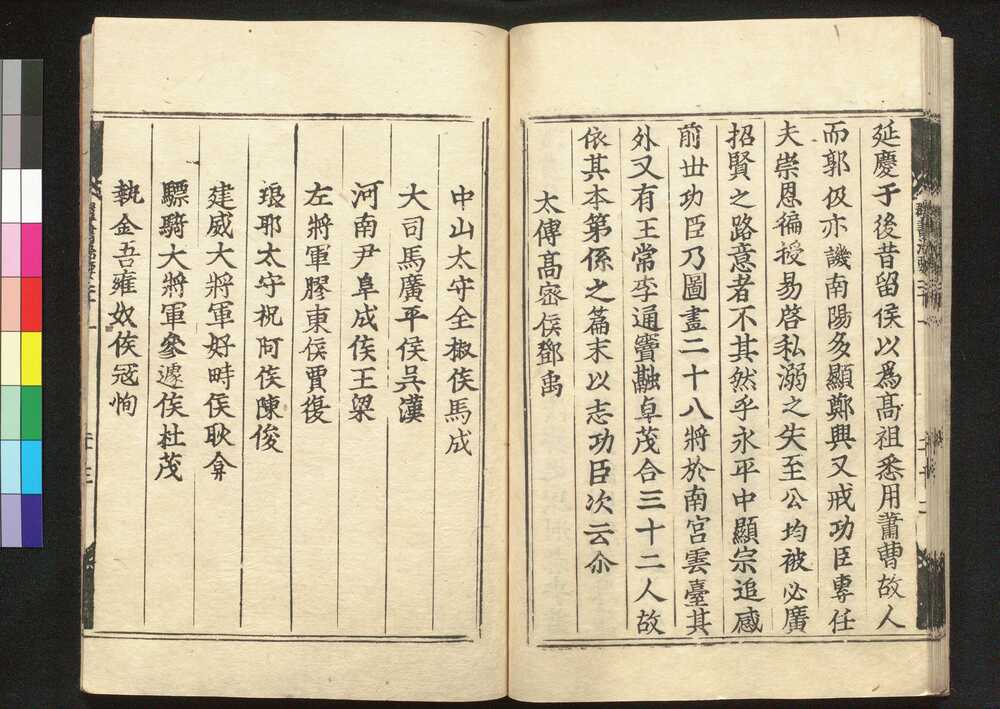 延慶于後昔留侯以爲髙祖悉用蕭曹故人
而郭伋亦譏南陽多顯鄭興又戒功臣專任
夫崇恩徧授易啓私溺之失至公均被必廣
招賢之路意者不其然乎永平中顯宗追感
前丗功臣乃圖畫二十八將於南宮雲臺其
外又有王常李通竇融卓茂合三十二人故
依其本第係之篇末以志功臣次云尒
太傅髙密侯鄧禹
中山太守全椒侯馬成
大司馬廣平侯吳漢
河南尹阜成侯王梁
左將軍膠東侯賈復
琅耶太守祝阿侯陳俊
建威大將軍好畤侯耿弇
驃騎大將軍參遽侯杜茂
執金吾雍奴侯寇恂